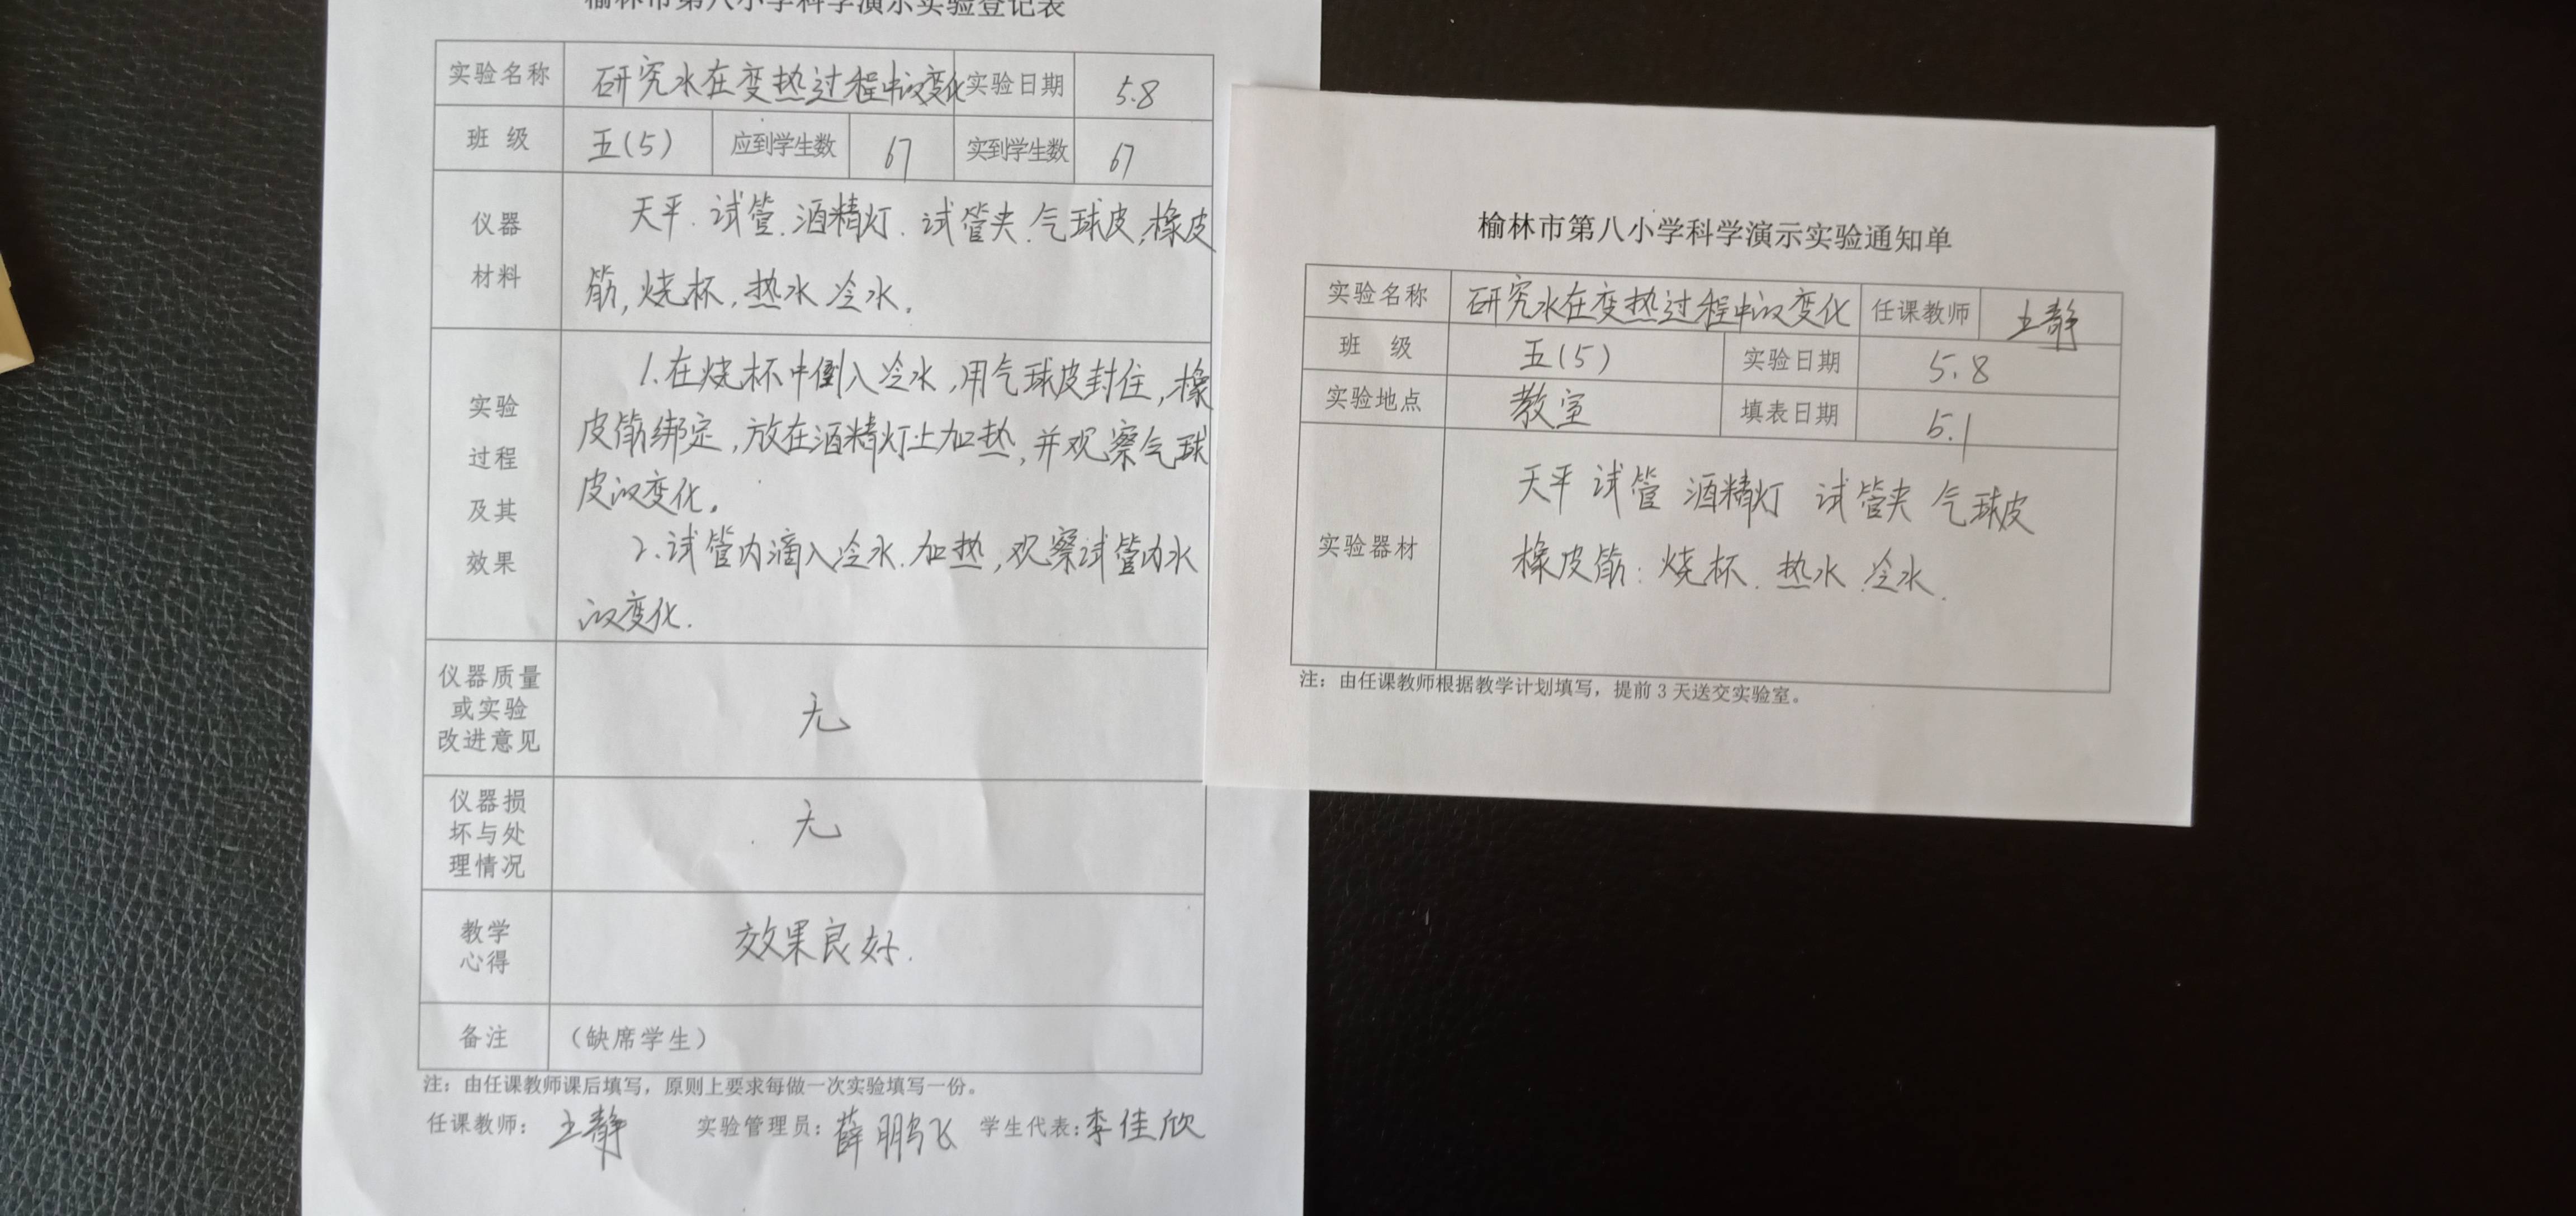 榆林市第八小学科学演示实验登记表
实验名称 研究水在变热过程中的变化 实验日期 5.8
班 级 五(5) 应到学生数 67 实到学生数 67
仪器
材料
天平.试管.酒精灯.试管夹.气球皮,橡皮
筋,烧杯,热水.冷水.
实验
过程
及其
效果
1.在烧杯中倒入冷水,用气球皮封住,橡
皮筋绑定,放在酒精灯上加热,并观察气球
皮的变化。
2.试管内滴入冷水.加热,观察试管内水
的变化.
仪器质量
或实验
改进意见
无
仪器损
坏与处
理情况
无
教学
心得
效果良好.
备注 (缺席学生)
注:由任课教师课后填写,原则上要求每做一次实验填写一份。
任课教师:王静 实验管理员:薛鹏飞 学生代表:李佳欣
榆林市第八小学科学演示实验通知单
实验名称 研究水在变热过程中的变化 任课教师 王静
班 级 五(5) 实验日期 5.8
实验地点 教室 填表日期 5.1
实验器材
天平 试管 酒精灯 试管夹 气球皮
橡皮筋:烧杯.热水.冷水.
注:由任课教师根据教学计划填写,提前3天送交实验室。